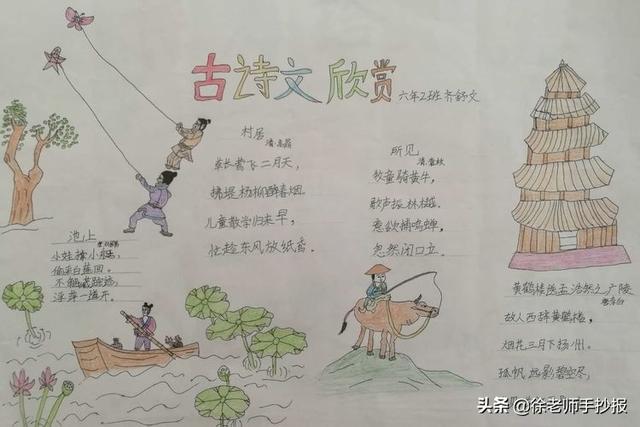 古诗文欣赏
六年2班 齐舒文
村居
清·高鼎
草长莺飞二月天，
拂堤杨柳醉春烟。
儿童散学归来早，
忙趁东风放纸鸢。
所见
清·袁枚
牧童骑黄牛，
歌声振林樾。
意欲捕鸣蝉，
忽然闭口立。
池上
小娃撑小艇，
偷采白莲回。
不解藏踪迹，
浮萍一道开。
黄鹤楼送孟浩然之广陵
唐·李白
故人西辞黄鹤楼，
烟花三月下扬州。
孤帆远影碧空尽，
头条 @徐老师手抄报